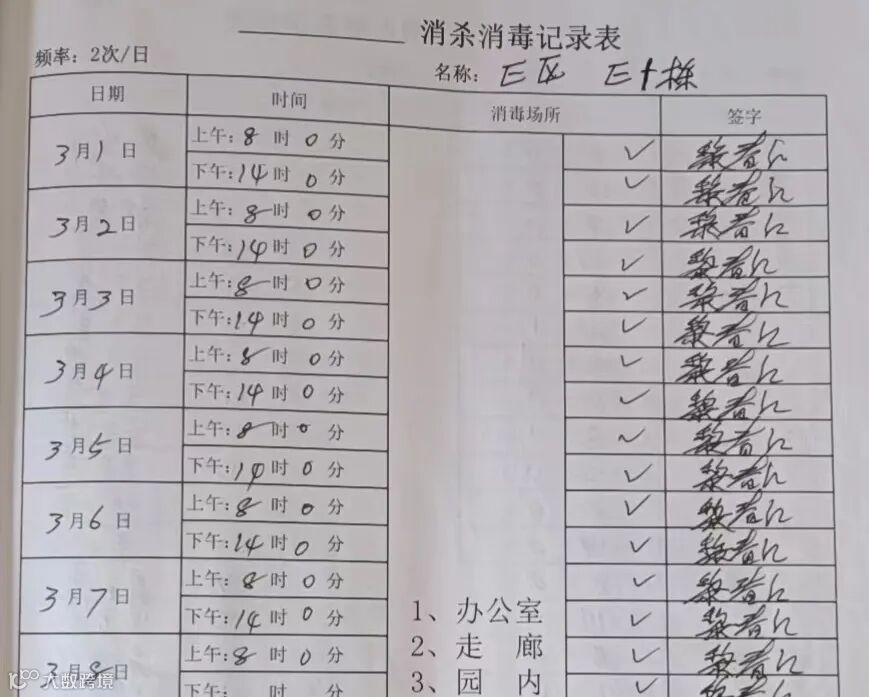 消杀消毒记录表
频率：2次/日 名称：E区 E十栋
日期 时间 消毒场所 签字
3月1日 上午：8时0分 ✓ 黎春江
下午：14时0分 ✓ 黎春江
3月2日 上午：8时0分 ✓ 黎春江
下午：14时0分 ✓ 黎春江
3月3日 上午：8时0分 ✓ 黎春江
下午：14时0分 ✓ 黎春江
3月4日 上午：8时0分 ✓ 黎春江
下午：14时0分 ✓ 黎春江
3月5日 上午：8时0分 ✓ 黎春江
下午：14时0分 ✓ 黎春江
3月6日 上午：8时0分 ✓ 黎春江
下午：14时0分 ✓ 黎春江
3月7日 上午：8时0分 ✓ 黎春江
下午：14时0分 1、办公室 ✓ 黎春江
3月8日 上午：8时0分 2、走廊 ✓ 黎春江
下午： 时 分 3、园内 ✓
大数跨境